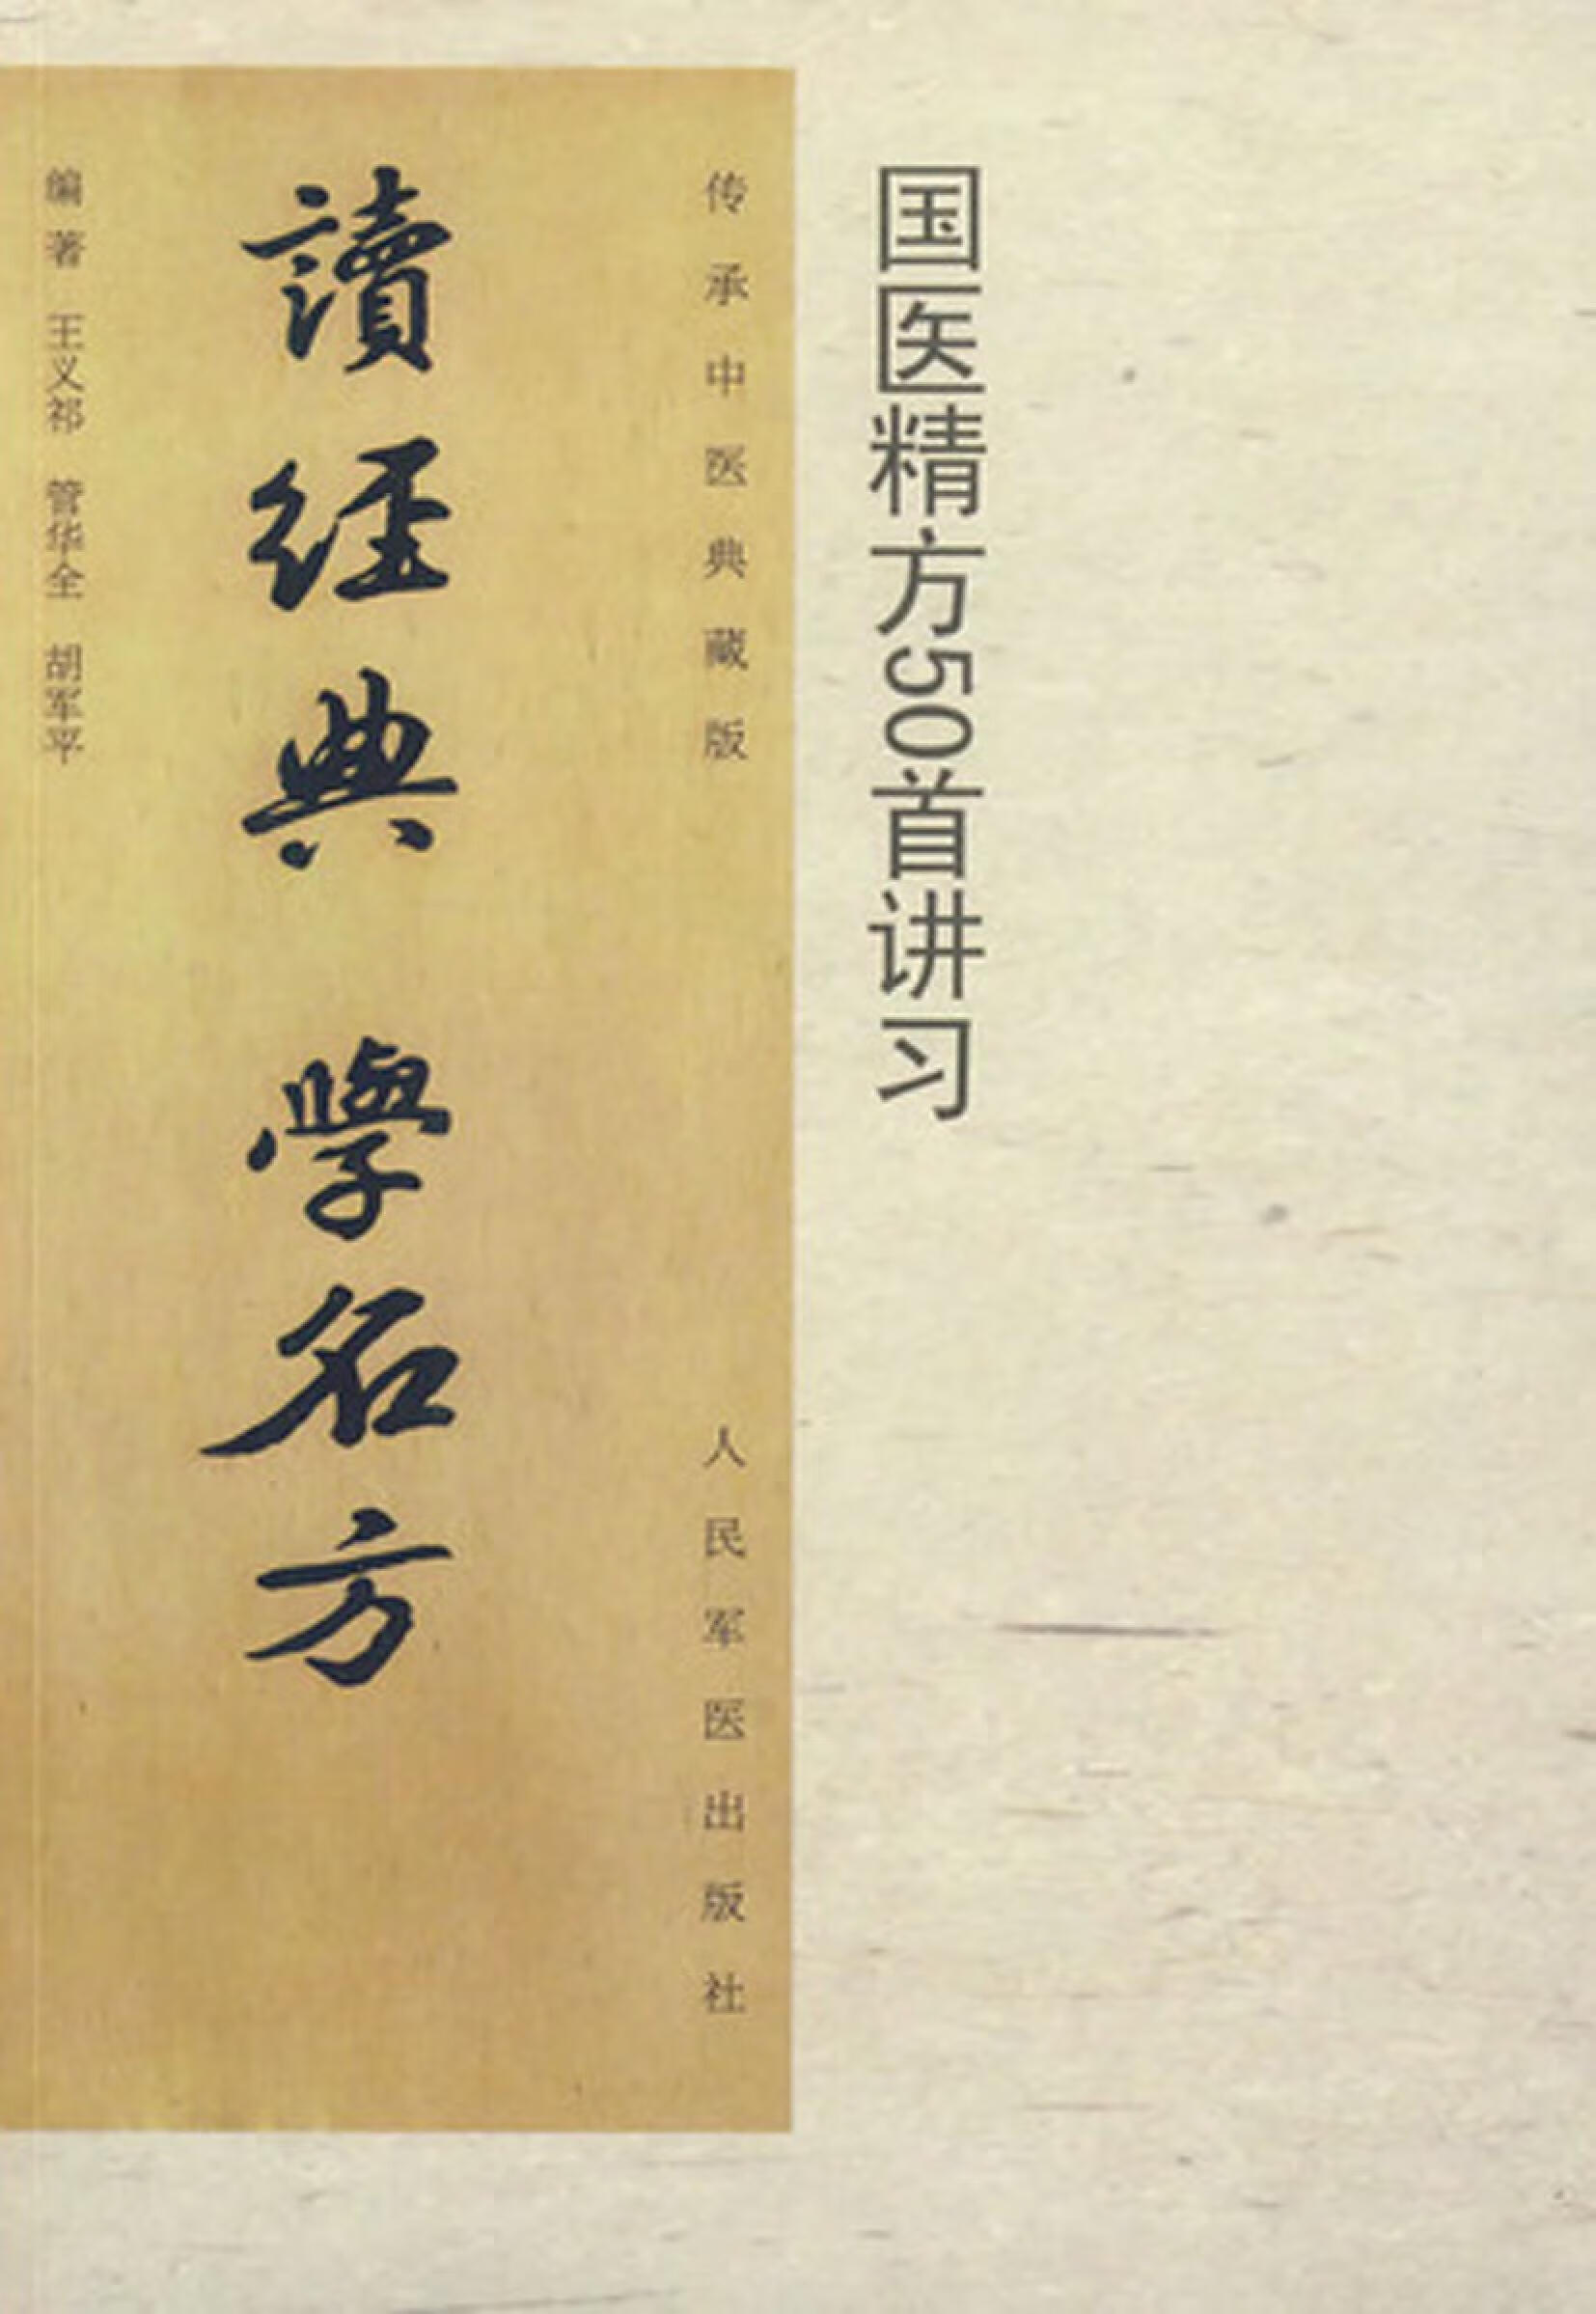 国医精方50首讲习
传承中医典藏版
人民军医出版社
讀經典 學名方
编著 王义祁 管华全 胡军平